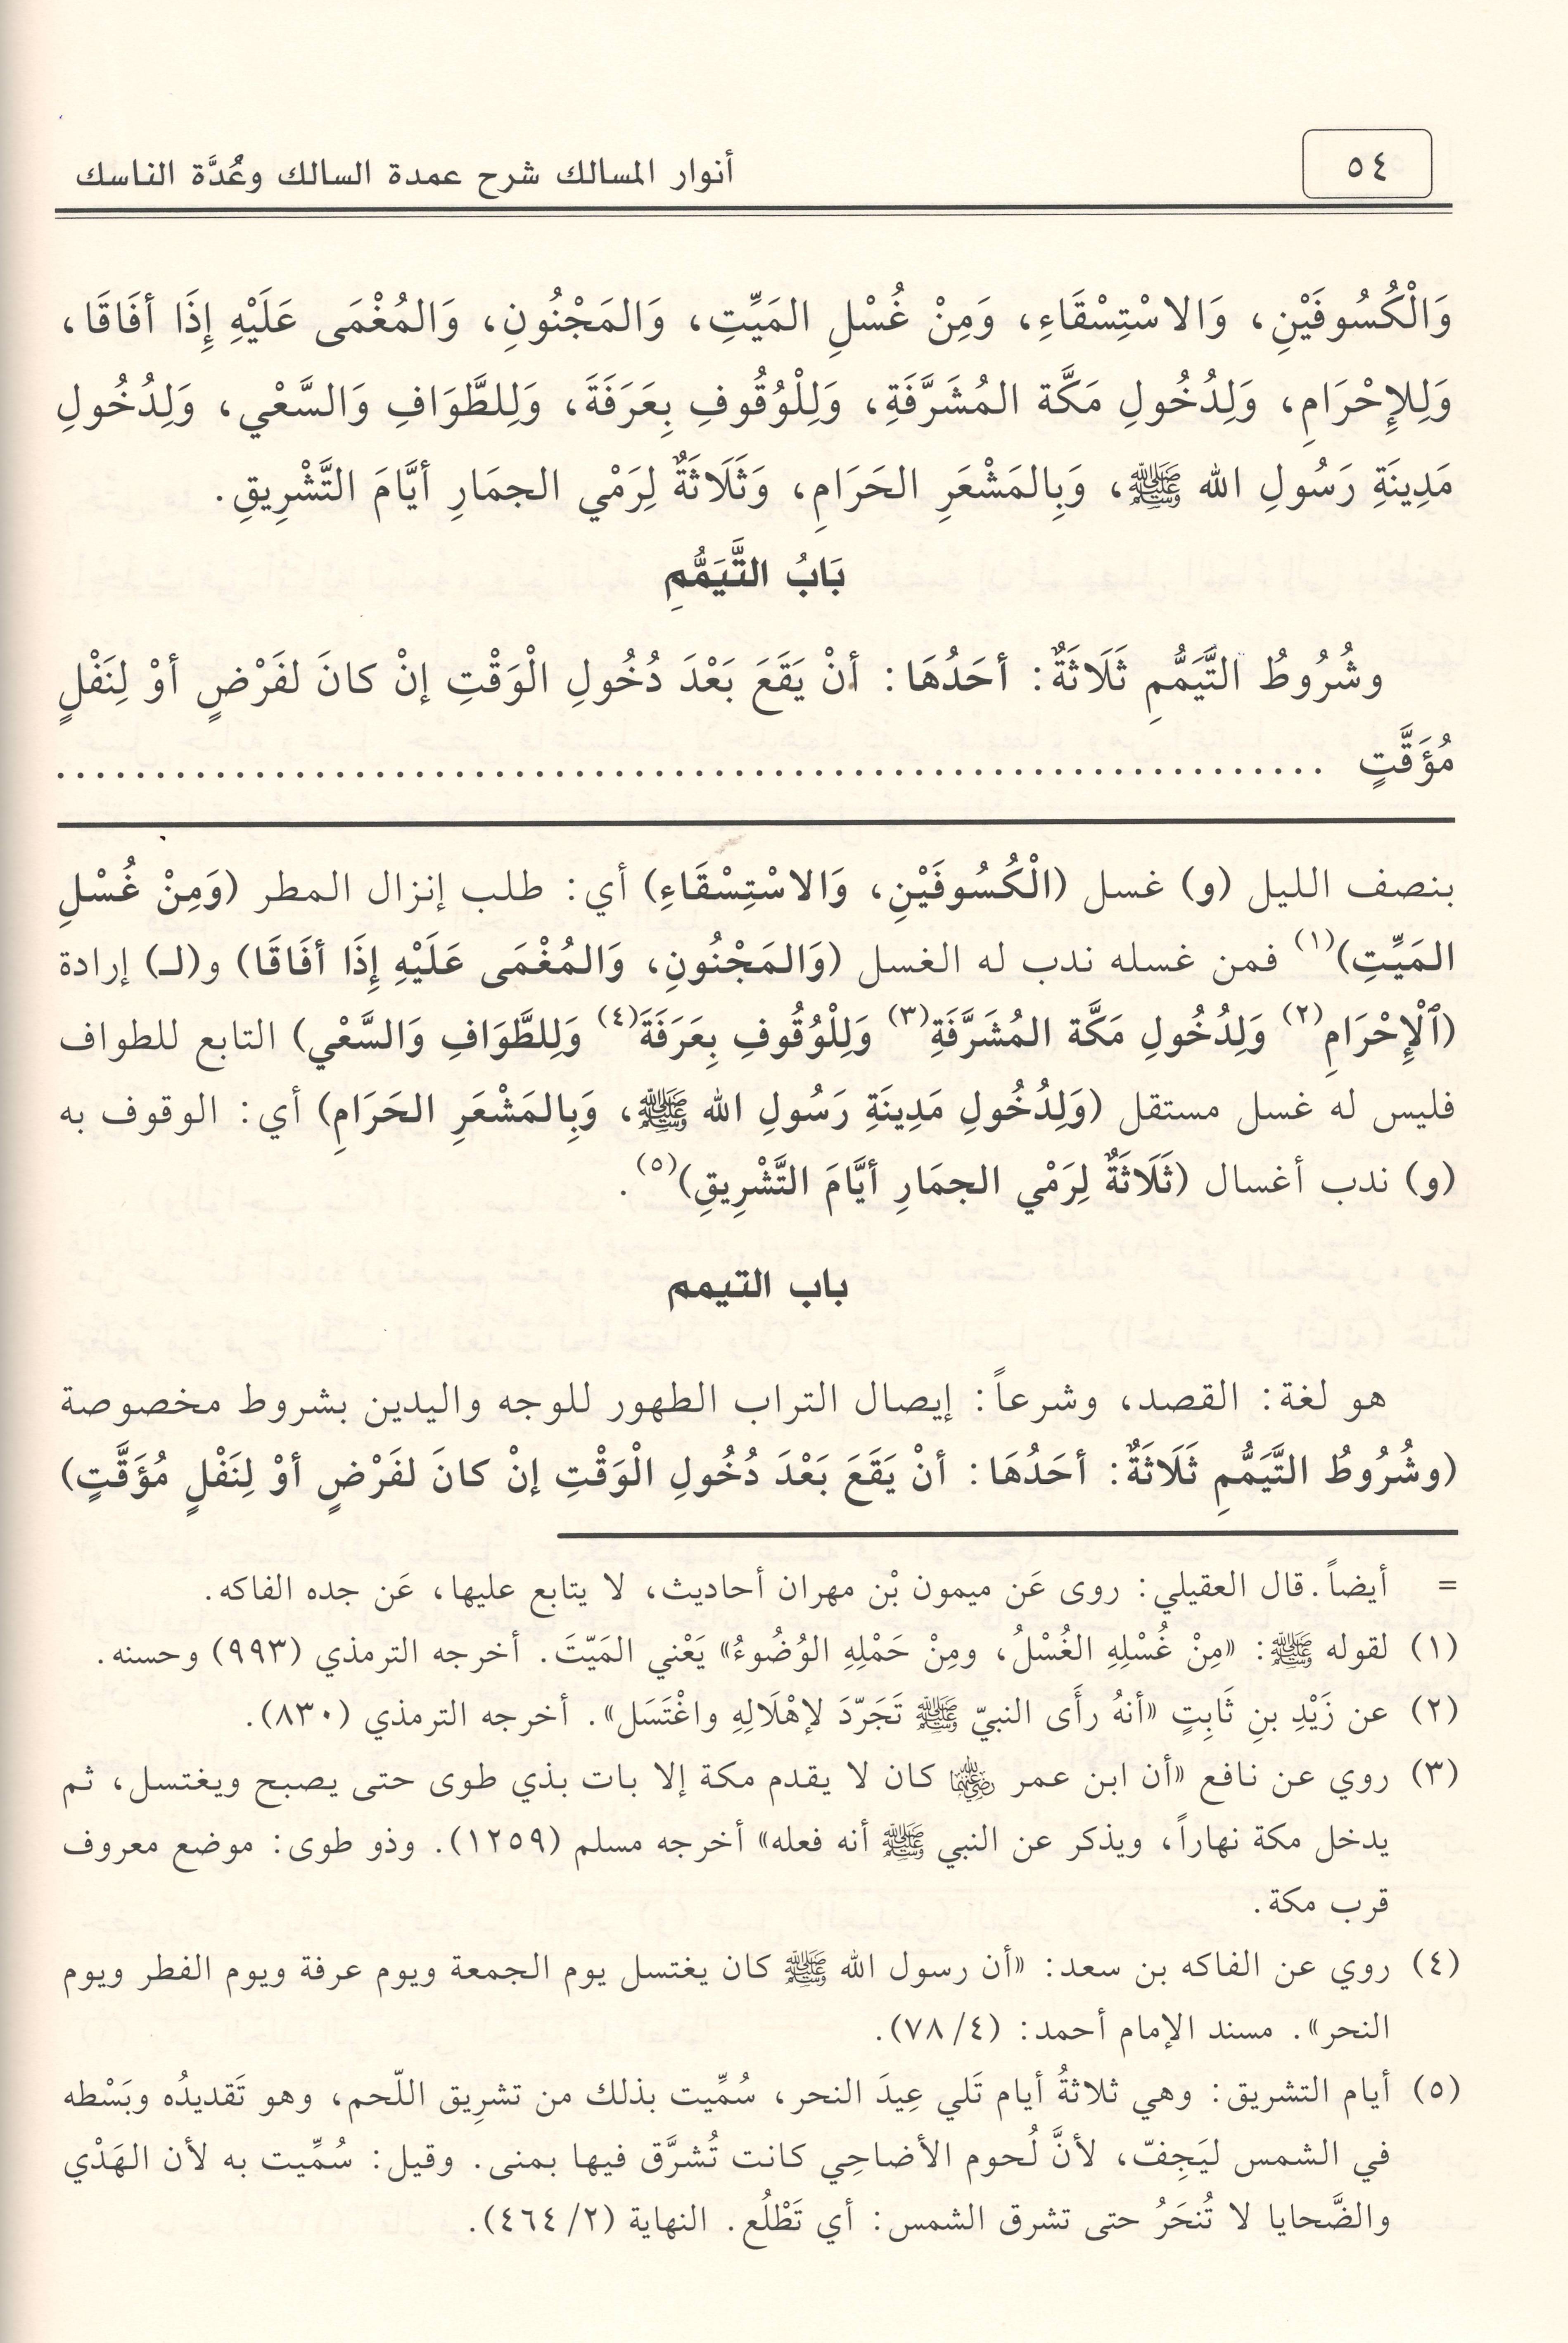 ٥٤
أنوار المسالك شرح عمدة السالك وعُدَّة الناسك
وَالْكُسُوفَيْنِ، وَالاسْتِسْقَاءِ، وَمِنْ غُسْلِ المَيِّتِ، وَالمَجْنُونِ، وَالمُغْمَى عَلَيْهِ إِذَا أفَاقَا،
وَلِلإِحْرَامِ، وَلِدُخُولِ مَكَّة المُشَرَّفَةِ، وَلِلْوُقُوفِ بِعَرَفَةَ، وَلِلطَّوَافِ وَالسَّعْي، وَلِدُخُولِ
مَدِينَةِ رَسُولِ الله ﷺ، وَبِالمَشْعَرِ الحَرَامِ، وَثَلَاثَةٌ لِرَمْي الجمَارِ أيَّامَ التَّشْرِيقِ.
بَابُ التَّيَمُّمِ
وشُرُوطُ التَّيَمُّمِ ثَلَاثَةٌ: أحَدُهَا: أنْ يَقَعَ بَعْدَ دُخُولِ الْوَقْتِ إنْ كانَ لفَرْضٍ أوْ لِنَفْلٍ
مُؤَقَّتٍ ................................................................
بنصف الليل (و) غسل (الْكُسُوفَيْنِ، وَالاسْتِسْقَاءِ) أي: طلب إنزال المطر (وَمِنْ غُسْلِ
المَيِّتِ)(١) فمن غسله ندب له الغسل (وَالمَجْنُونِ، وَالمُغْمَى عَلَيْهِ إِذَا أفَاقَا) و(لـ) إرادة
(ٱلْإِحْرَامِ(٢) وَلِدُخُولِ مَكَّة المُشَرَّفَةِ(٣) وَلِلْوُقُوفِ بِعَرَفَةَ(٤) وَلِلطَّوَافِ وَالسَّعْي) التابع للطواف
فليس له غسل مستقل (وَلِدُخُولِ مَدِينَةِ رَسُولِ الله ﷺ، وَبِالمَشْعَرِ الحَرَامِ) أي: الوقوف به
(و) ندب أغسال (ثَلَاثَةٌ لِرَمْي الجمَارِ أيَّامَ التَّشْرِيقِ)(٥).
باب التيمم
هو لغة: القصد، وشرعاً: إيصال التراب الطهور للوجه واليدين بشروط مخصوصة
(وشُرُوطُ التَّيَمُّمِ ثَلَاثَةٌ: أحَدُهَا: أنْ يَقَعَ بَعْدَ دُخُولِ الْوَقْتِ إنْ كانَ لفَرْضٍ أوْ لِنَفْلٍ مُؤَقَّتٍ)
= أيضاً. قال العقيلي: روى عَن ميمون بْن مهران أحاديث، لا يتابع عليها، عَن جده الفاكه.
(١) لقوله ﷺ: «مِنْ غُسْلِهِ الغُسْلُ، ومِنْ حَمْلِهِ الوُضُوءُ» يَعْني المَيّتَ. أخرجه الترمذي (٩٩٣) وحسنه.
(٢) عن زَيْدِ بنِ ثَابِتٍ «أنهُ رأَى النبيّ ﷺ تَجَرّدَ لإهْلَالِهِ واغْتَسَل». أخرجه الترمذي (٨٣٠).
(٣) روي عن نافع «أن ابن عمر رضي الله عنهما كان لا يقدم مكة إلا بات بذي طوى حتى يصبح ويغتسل، ثم
يدخل مكة نهاراً، ويذكر عن النبي ﷺ أنه فعله» أخرجه مسلم (١٢٥٩). وذو طوى: موضع معروف
قرب مكة.
(٤) روي عن الفاكه بن سعد: «أن رسول الله ﷺ كان يغتسل يوم الجمعة ويوم عرفة ويوم الفطر ويوم
النحر». مسند الإمام أحمد: (٧٨/٤).
(٥) أيام التشريق: وهي ثلاثةُ أيام تَلي عِيدَ النحر، سُمِّيت بذلك من تشرِيق اللّحم، وهو تَقديدُه وبَسْطه
في الشمس ليَجِفّ، لأنَّ لُحوم الأضاحِي كانت تُشرَّق فيها بمنى. وقيل: سُمِّيت به لأن الهَدْي
والضَّحايا لا تُنحَرُ حتى تشرق الشمس: أي تَطْلُع. النهاية (٤٦٤/٢).